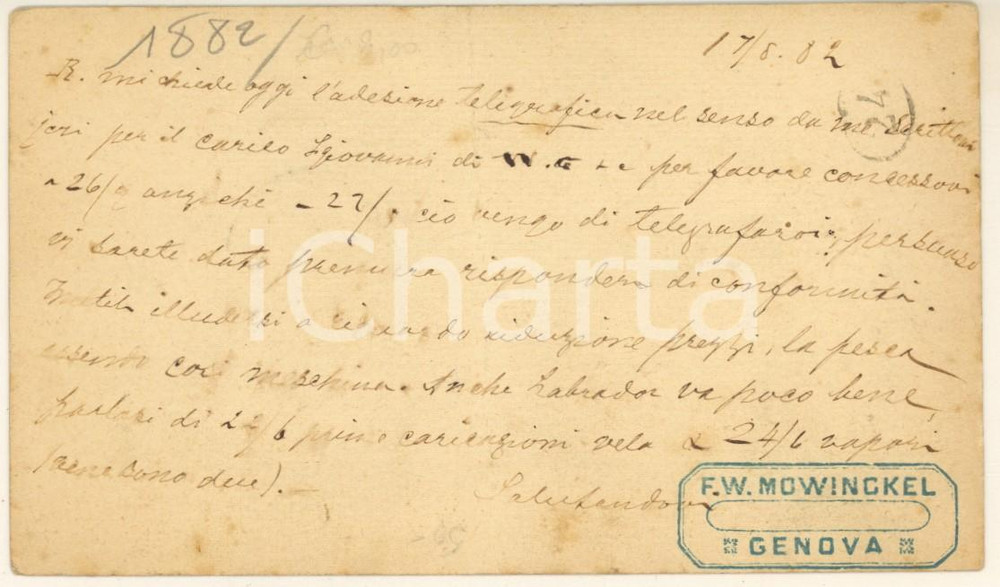 1882/
17/8.82
R. mi chiede oggi l'adesione telegrafica nel senso da me scritto
jeri per il carico S Giovanni di per favore concessovi
a 26/ anziché 27/ ciò vengo di telegrafarvi, persuaso
vi sarete dato premura rispondere di conformità.
Inutile illudersi a riguardo riduzione prezzi, la pesca
essendo così meschina. Anche Labrador va poco bene,
parlasi di 22/6 prime caricazioni vela e 24/6 vapori
(ve ne sono due).—
Salutandovi
F.W. MOWINCKEL
GENOVA
iCharta